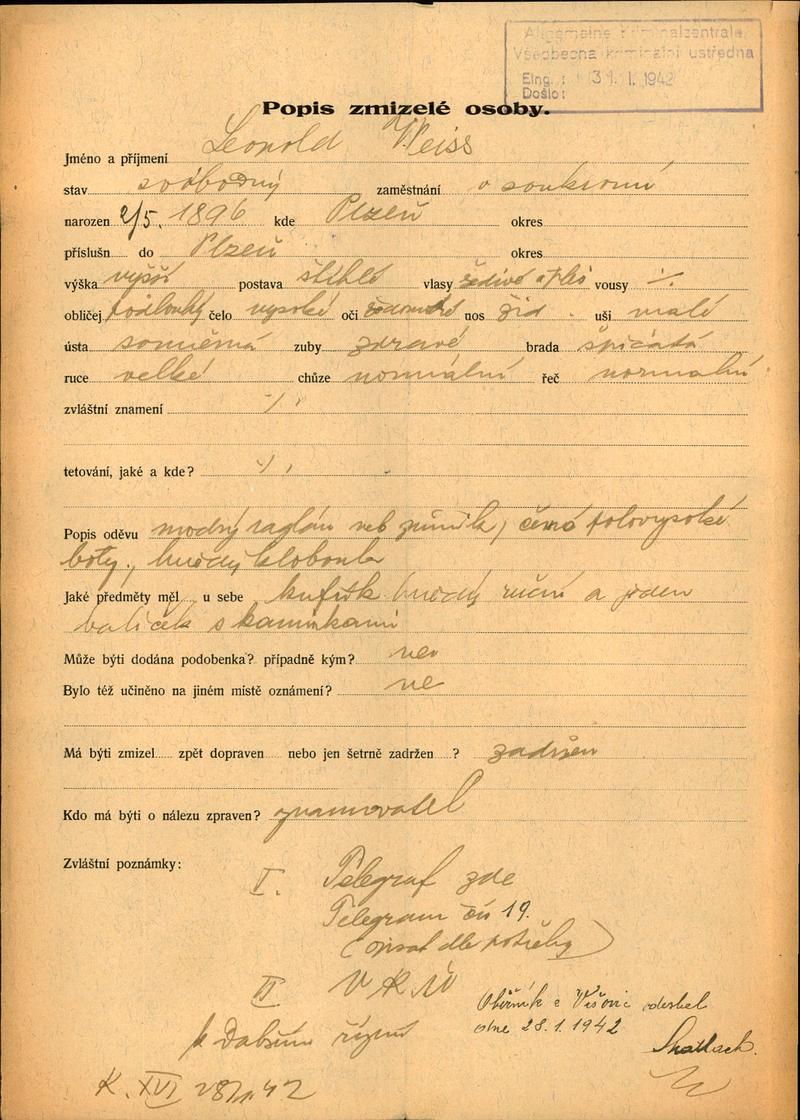 Allgemeine Kriminalzentrale
Všeobecná kriminální ústředna
Eing.: 31. 1. 1942
Došlo:
Popis zmizelé osoby.
Jméno a příjmení Leopold Weiss
stav svobodný zaměstnání v soukromí
narozen 2/5. 1896 kde Plzeň okres
příslušn do Plzeň okres
výška vyšší postava štíhlé vlasy šedivé vousy ·/.
obličej podlouhlý čelo vysoké oči nos žid. uši malé
ústa souměrná zuby zdravé brada špičatá
ruce velké chůze normální řeč normalní
zvláštní znamení ·/.
tetování, jaké a kde? ·/.
Popis oděvu modrý raglán neb zimník, černé polovysoké
boty, hnědý klobouk
Jaké předměty měl u sebe kufřík hnědý ruční a jeden
balíček s kamínkami
Může býti dodána podobenka? případně kým? ne
Bylo též učiněno na jiném místě oznámení? ne
Má býti zmizel zpět dopraven nebo jen šetrně zadržen ? zadržen
Kdo má býti o nálezu zpraven? oznamovatel
Zvláštní poznámky:
I. Telegraf zde
Telegram čís 19.
(opsat dle potřeby)
II V K Ú
k dalšímu řízení
Oběžník z Vršovic odeslal
dne 28. 1. 1942
K. XVI 28/1 42